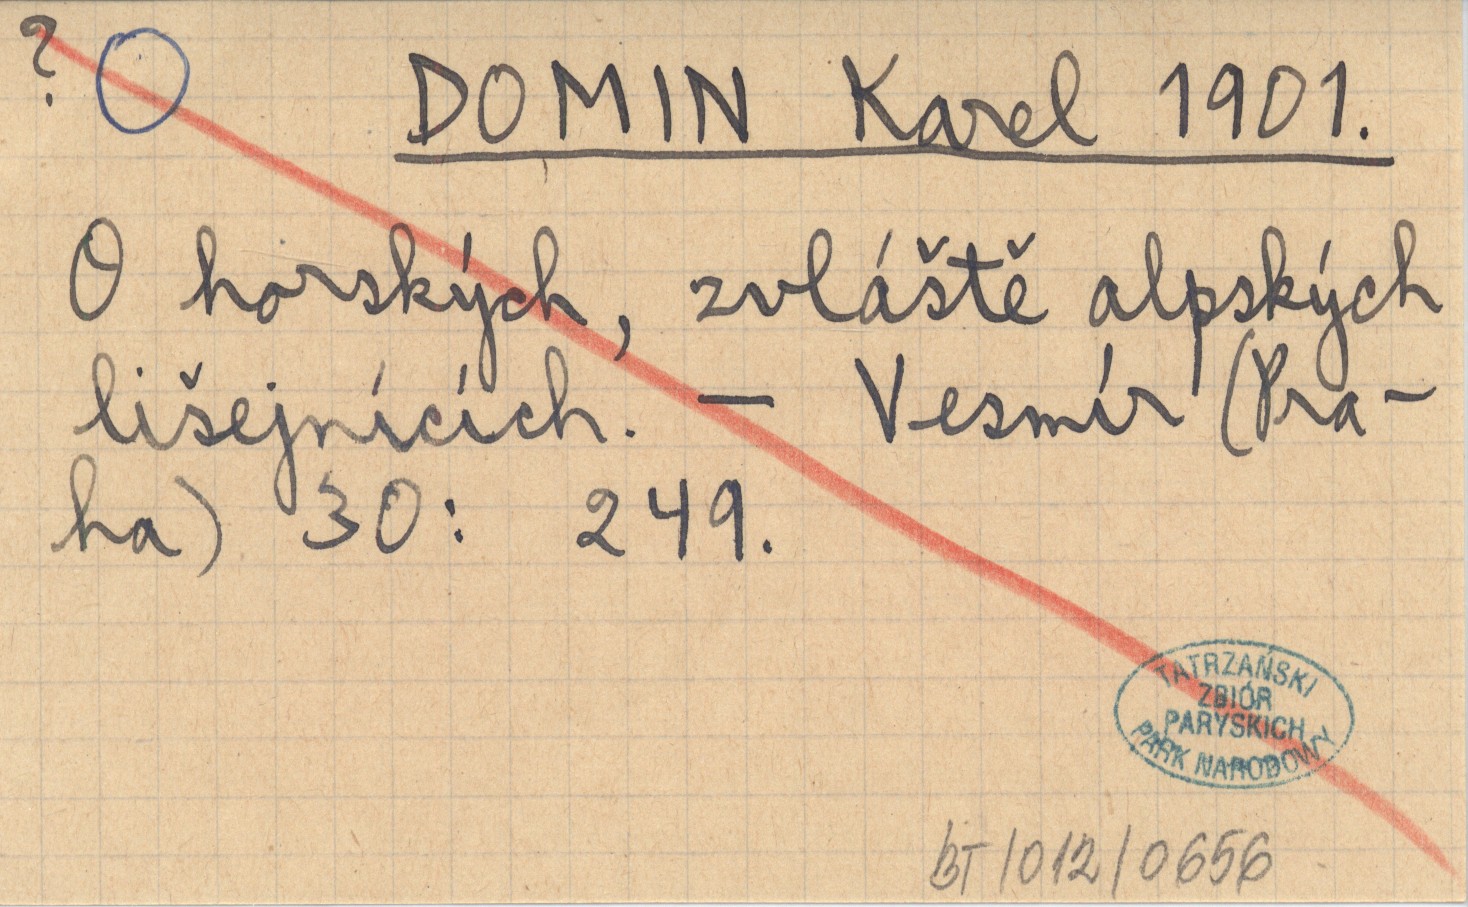 ?
DOMIN Karel 1901.
O horských, zvláště alpských
lišejnících. — Vesmír (Pra-
ha) 30: 249.
TATRZAŃSKI
ZBIÓR
PARYSKICH
PARK NARODOWY
BT/012/0656